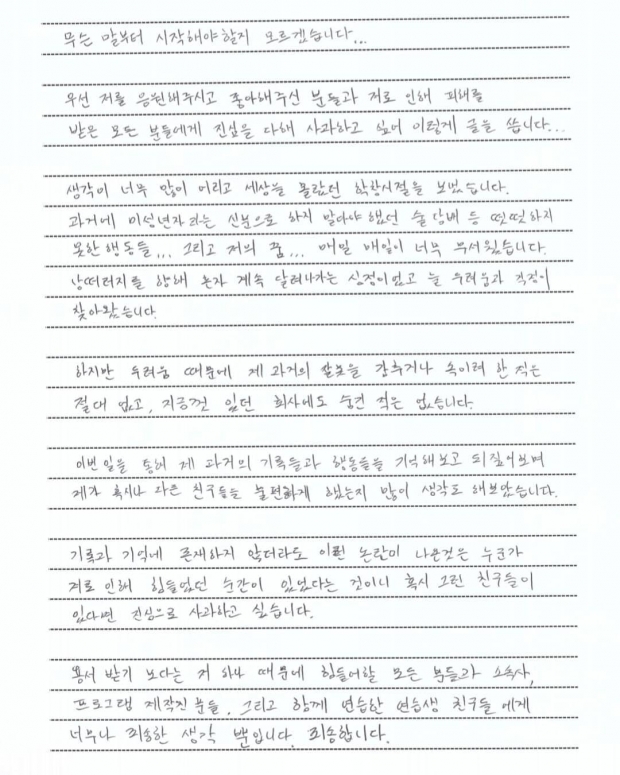 무슨 말부터 시작해야할지 모르겠습니다...
우선 저를 응원해주시고 좋아해주신 분들과 저로 인해 피해를
받은 모든 분들에게 진심을 다해 사과하고 싶어 이렇게 글을 씁니다...
생각이 너무 많이 어리고 세상을 몰랐던 학창시절을 보냈습니다.
과거에 미성년자라는 신분으로 하지 말아야 했던 술 담배 등 떳떳하지
못한 행동들... 그리고 저의 꿈... 매일 매일이 너무 무서웠습니다.
낭떠러지를 향해 혼자 계속 달려나가는 심정이었고 늘 두려움과 걱정이
찾아왔습니다.
하지만 두려움 때문에 제 과거의 잘못을 감추거나 속이려 한 적은
절대 없고, 지금껏 있던 회사에도 숨긴 적은 없습니다.
이번일을 통해 제 과거의 기록들과 행동들을 기억해보고 되짚어보며
제가 혹시나 다른 친구들을 불편하게 했는지 많이 생각도 해보았습니다.
기록과 기억에 존재하지 않더라도 이런 논란이 나온것은 누군가
저로 인해 힘들었던 순간이 있었다는 것이니 혹시 그런 친구들이
있다면 진심으로 사과하고 싶습니다.
용서 받기 보다는 저 하나 때문에 힘들어할 모든 분들과 소속사,
프로그램 제작진 분들, 그리고 함께 연습한 연습생 친구들 에게
너무나 죄송한 생각 뿐입니다. 죄송합니다.